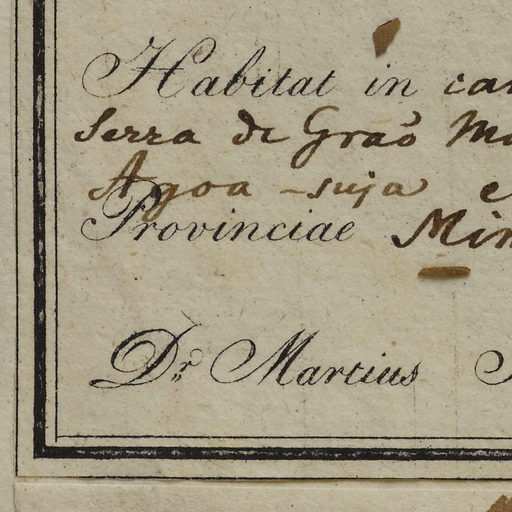 Habitat in
Serra de Graõ
Agoa-suja
Provinciae
Dr. Martius